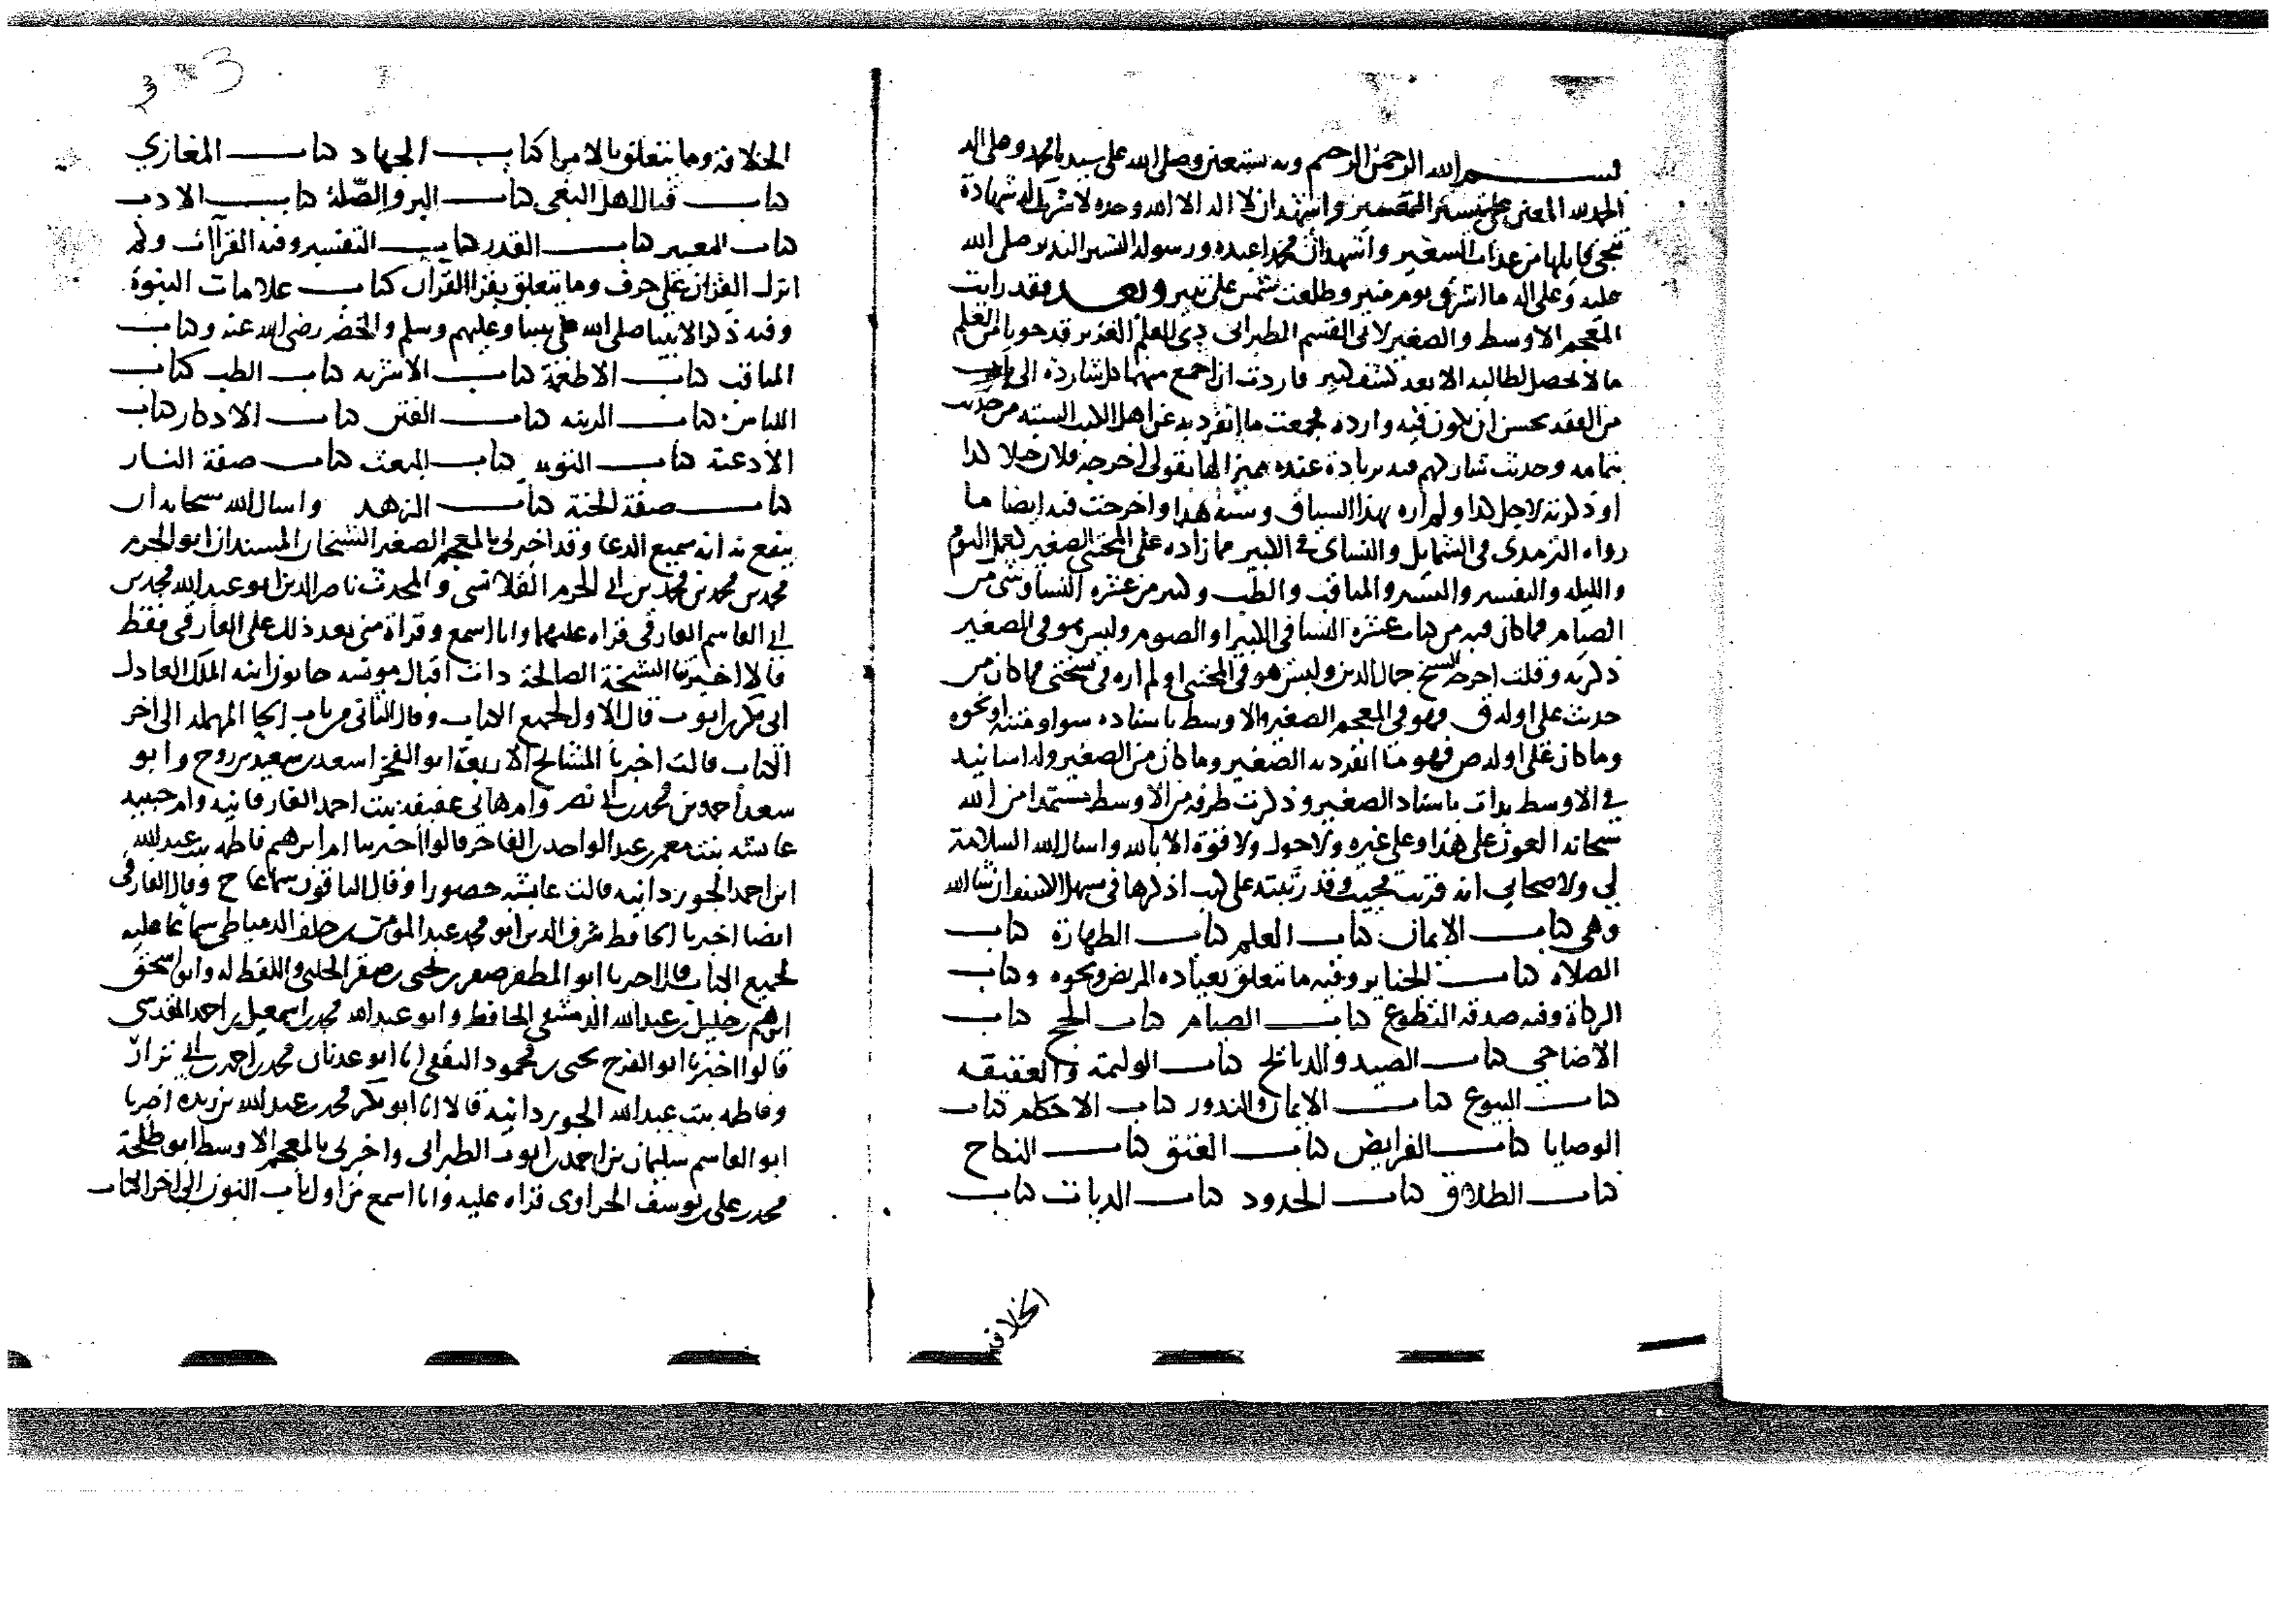 بسم الله الرحمن الرحيم وبه نستعين وصلى الله على سيدنا محمد وعلى اله
الحمد لله المعين على تيسير العسير واشهد ان لا اله الا الله وحده لا شريك له شهادة
تنجي قايلها من عذاب السعير واشهد ان محمدا عبده ورسوله البشير النذير صلى الله
عليه وعلى اله ما اشرق يوم منير وطلعت شمس على ثبير وبعد فقد رايت
المعجم الاوسط والصغير لابى القسم الطبرانى ذى العلم الغزير قد حويا من العلم
ما لا يحصل لطالبه الا بعد كشف كبير فاردت ان اجمع منهما كل شاردة الى
من العقد يحسن ان يكون فيه وارده فجمعت ما انفرد به عن اهل الكتب الستة من حديث
بتمامه وحديث شاركهم فيه بزيادة عنده مميزا لها بقولي اخرجه فلان خلا كذا
او ذكرته لاجل كذا ولم اره بهذا السياق وشبه هذا واخرجت فيه ايضا ما
رواه الترمذى فى الشمايل والنساى فى الكبير مما زاده على المجتبى الصغير كعمل اليوم
والليله والتفسير والسير والمناقب والطب وكثير من عشرة النسا وشى من
الصيام فما كان فيه من كتاب عشرة النسا فى الكبير او الصوم وليس هو فى الصغير
ذكرته وقلت اخرجه الشيخ جمال الدين وليس هو فى المجتبى او لم اره فى نسختى فما كان من
حديث على اوله ق فهو فى المعجم الصغير والاوسط باسناده سوا ومتنه او نحوه
وما كان على اوله ص فهو مما انفرد به الصغير وما كان من الصغير وله اسانيد
فى الاوسط بدات باسناد الصغير وذكرت طرقه من الاوسط مستمدا من الله
سبحانه العون على هذا وعلى غيره ولا حول ولا قوة الا بالله واسال الله السلامة
لي ولاصحابي انه قريب مجيب وقد رتبته على كتب اذكرها فى سهل الكشف ان شا الله
وهى كتاب الايمان كتاب العلم كتاب الطهارة كتاب
الصلاة كتاب الجنايز وفيه ما يتعلق بعياده المريض ونحوه وكتاب
الزكاة وفيه صدقة التطوع كتاب الصيام كتاب الحج كتاب
الاضاحي كتاب الصيد والذبائح كتاب الوليمة والعقيقه
كتاب البيوع كتاب الايمان والنذور كتاب الاحكام كتاب
الوصايا كتاب الفرايض كتاب العتق كتاب النكاح
كتاب الطلاق كتاب الحدود كتاب الديات كتاب
الخلافة
3 3
الخلافة وما يتعلق بالامرا كتاب الجهاد كتاب المغازي
كتاب قتال اهل البغى كتاب البر والصلة كتاب الادب
كتاب التعبير كتاب القدر كتاب التفسير وفيه القراات وكم
انزل القران على حرف وما يتعلق بقراة القرآن كتاب علامات النبوة
وفيه ذكر الانبيا صلى الله على نبينا وعليهم وسلم والخضر رضى الله عنه وكتاب
المناقب كتاب الاطعمة كتاب الاشربه كتاب الطب كتاب
اللباس كتاب الزينه كتاب الفتن كتاب الاذكار كتاب
الادعية كتاب التوبه كتاب البعث كتاب صفة النار
كتاب صفة الجنة كتاب الزهد واسال الله سبحانه ان
ينفع به انه سميع الدعا وقد اخبرنى بالمعجم الصغير الشيخان المسندان ابو الحرم
محمد بن محمد بن محمد بن ابى الحرم القلانسى والمحدث ناصر الدين ابو عبد الله محمد بن
ابى القاسم الفارقى قراه عليهما وانا اسمع وقراة منى بعد ذلك على الفارقى فقط
قالا اخبرتنا الشيخة الصالحة ذات اقبال مونسه خاتون ابنه الملك العادل
ابى بكر بن ايوب قال الاول لجميع الكتاب وقال الثانى من باب الحا المهمله الى اخر
الكتاب قالت اخبرنا المشايخ الاربعة ابو الفخر اسعد بن سعيد بن روح وابو
سعد احمد بن محمد بن ابى نصر وام هانى عفيفه بنت احمد الفارفانيه وام حبيبه
عائشه بنت معمر بن عبد الواحد بن الفاخر قالوا اخبرتنا ام ابرهيم فاطمه بنت عبد الله
ابن احمد الجوزدانيه قالت عايشه حضورا وقال الباقون سماعا ح وقال الفارقى
ايضا اخبرنا الحافظ شرف الدين ابو محمد عبد المؤمن بن خلف الدمياطى سماعا عليه
لجميع الكتاب قال اخبرنا ابو المظفر صقر بن يحيى بن صقر الحلبى واللفظ له وابو اسحق
ابرهيم بن خليل بن عبد الله الدمشقى الحافظ وابو عبد الله محمد بن اسمعيل بن احمد المقدسى
قالوا اخبرنا ابو الفرج يحيى بن محمود الثقفى انا ابو عدنان محمد بن احمد بن ابى نزار
وفاطمه بنت عبد الله الجوزدانية قالا انا ابو بكر محمد بن عبد الله بن ريذه اخبرنا
ابو القاسم سليمان بن احمد بن ايوب الطبرانى واخبرنى بالمعجم الاوسط ابو طلحة
محمد بن على بن يوسف الحراوى قراه عليه وانا اسمع من اول باب النون الى اخر الكتاب